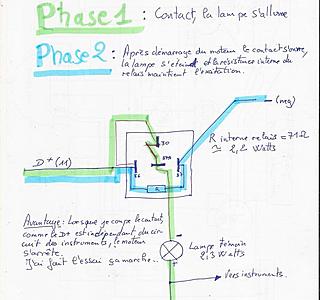 Phase 1 : Contact, la lampe s'allume
Phase 2 : Après démarrage du moteur le contact s'ouvre,
la lampe s'éteint et la résistance interne du
relais maintient l'excitation.
(neg)
30
R interne relais = 71Ω
≅ 2,2 Watts
D+ (11)
87a
86
85
Avantage : Lorsque je coupe le contact,
comme le D+ est indépendant du cir
cuit des instruments, le moteur
s'arrête.
J'ai fait l'essai ça marche..
Lampe témoin
2,3 Watts
Vers instruments.